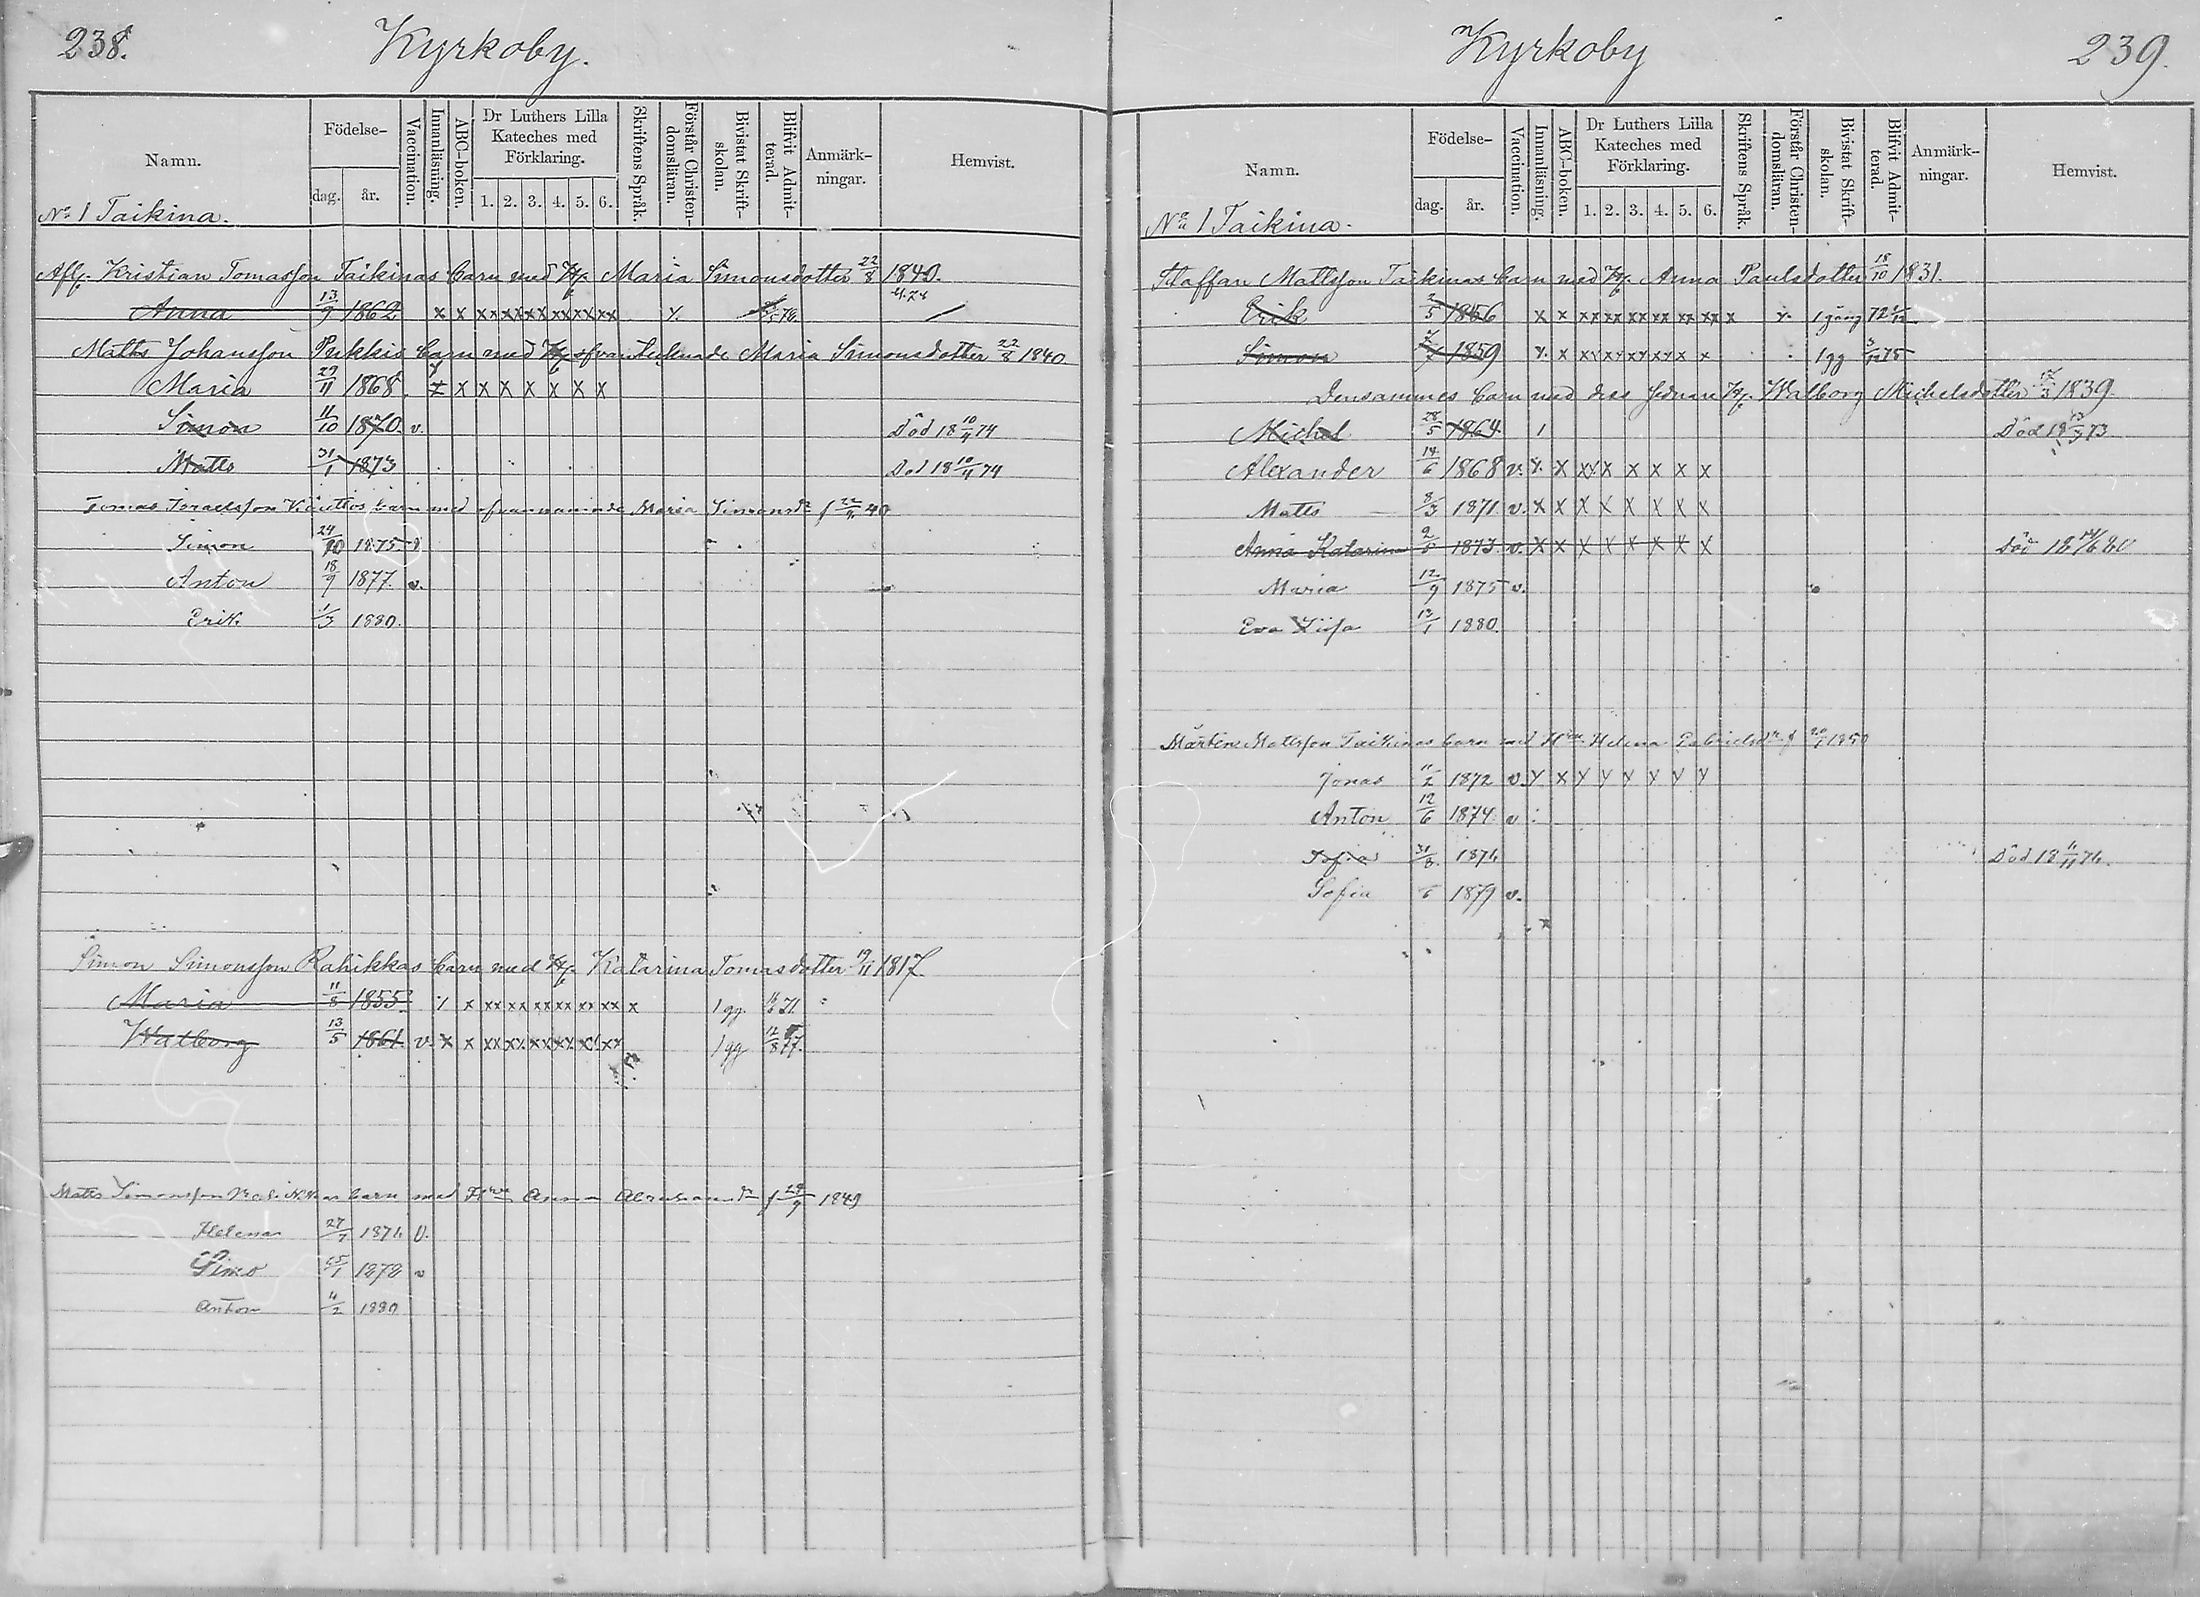 238.
Kyrkoby.
Namn.
Födelse-
dag.
år.
Vaccination.
Innanläsning.
ABC-boken.
Dr Luthers Lilla Kateches med Förklaring.
1. 2. 3. 4. 5. 6.
Skriftens Språk.
Förstår Christen-domsläran.
Bivistat Skrift-skolan.
Blifvit Admit-terad.
Anmärk-ningar.
Hemvist.
No 1 Taikina.
Afl. Kristian Tomasson Taikinas barn med H. Maria Simonsdotter 22/8 1840.
Anna 13/9 1862 x x xx xx xx xx xx xx
Matts Johansson Pukkis barn med ofvantecknade Maria Simonsdotter 22/8 1840
Maria 29/11 1868. x x x x x x x
Simon 11/10 1870. v. Död 18 10/4 74
Matts 31/1 1873 Död 18 10/4 74
Tomas Israelsson barn med ofvannämnde Maria Simonsdr f 22/8 40
Simon 24/10 1875
Anton 18/9 1877 v.
Erik 1/3 1880.
Simon Simonsson Rahikkas barn med H. Katarina Tomasdotter 19/11 1817.
Maria 11/8 1855 x xx xx xx xx xx xx x 1 gg. 71.
Walborg 13/5 1861. v. x x xx xx xx xx xx xx 1 gg 12/8 77.
Matts Simonsson Rahikkas barn med Anna f 1849
Helena 27/7 1876 v.
Simo 1878 v
Anton 11/2 1880
Kyrkoby
239.
Namn.
Födelse-
dag.
år.
Vaccination.
Innanläsning.
ABC-boken.
Dr Luthers Lilla Kateches med Förklaring.
1. 2. 3. 4. 5. 6.
Skriftens Språk.
Förstår Christen-domsläran.
Bivistat Skrift-skolan.
Blifvit Admit-terad.
Anmärk-ningar.
Hemvist.
No 1 Taikina.
Staffan Mattsson Taikinas barn med H. Anna Paulsdotter 18/10 1831.
Erik 2/5 1856 x x xx xx xx xx xx xx x 1 gång
Simon 1859 x xx xx xx xx x x 1 gg
Densammes barn med dess sednare H. Walborg Michelsdotter 1839.
Michel 28/5 1864. 1 Död
Alexander 14/6 1868 v. x x xx x x x x x
Matts 8/3 1871 v. x x x x x x x x
Anna Katarina 1873. v. x x x x x x x x Död
Maria 12/9 1875 v.
Eva Liisa 13/1 1880.
Mårten Mattsson Taikinas barn med Helena f 1850
Jonas 11/2 1872 v. x x x x x x x x
Anton 12/6 1874 v
Sofia 31/8 1876 Död 18 11/11 76.
Sofia 1879 v.